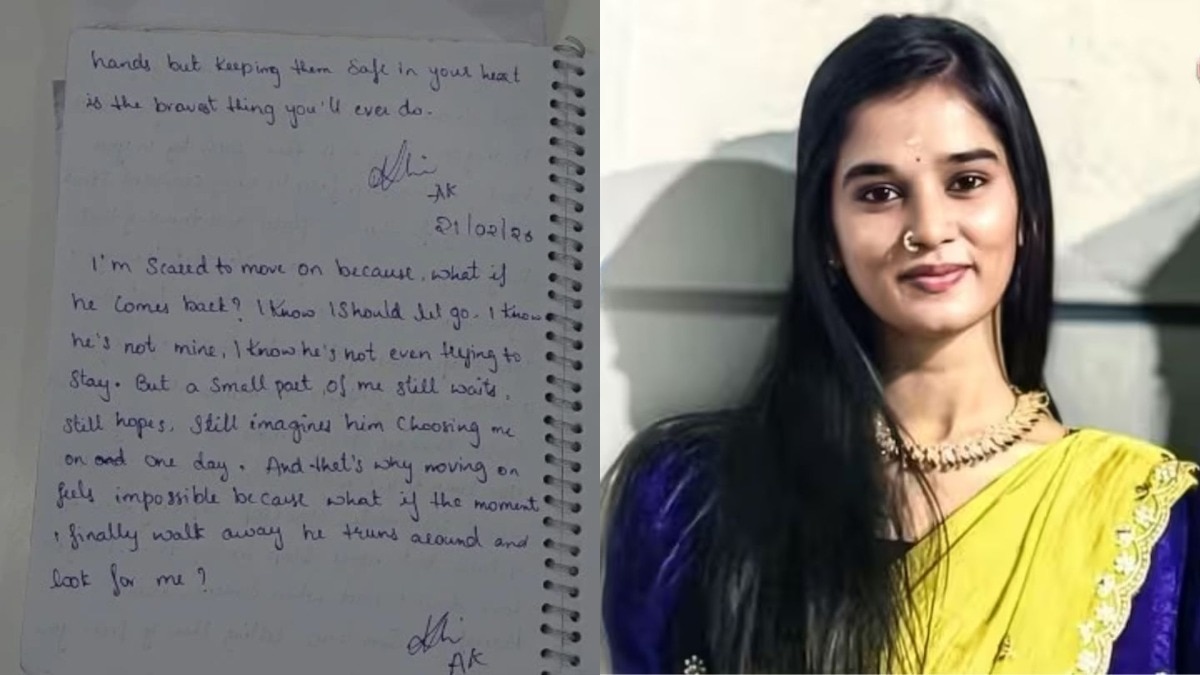 hands but keeping them safe in your heart
is the bravest thing you'll ever do.
-AK
21/02/26
I'm Scared to move on because, what if
he comes back? I know I Should let go. I know
he's not mine, I know he's not even trying to
Stay. But a small part of me still waits,
still hopes, Still imagines him Choosing me
on one day. And that's why moving on
feels impossible because what if the moment
I finally walk away he truns around and
look for me?
AK